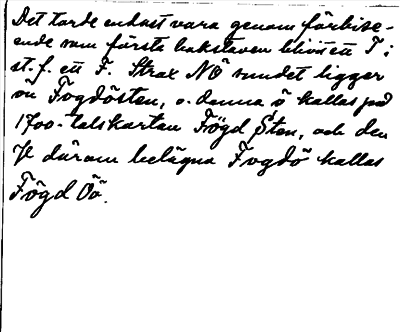 Det torde endast vara genom förbise-
ende som första bokstaven blivit ett T i
st. f. ett F. Strax NÖ sundet ligger
ön Fogdösten, o. denna ö kallas på
1700-talskartan Fögd Sten, och den
V därom belägna Fogdö kallas
Fögd Öö.